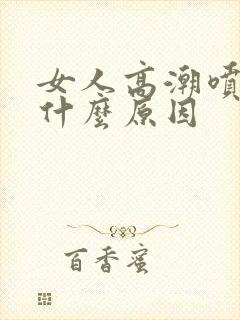 女人高潮噴
什麼原因
百香蜜